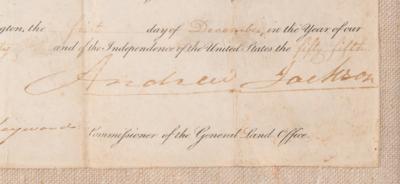 ngton, the first day of December, in the Year of our
and of the Independence of the United States the fifty fifth
Andrew Jackson
Haywood Commissioner of the General Land Office.